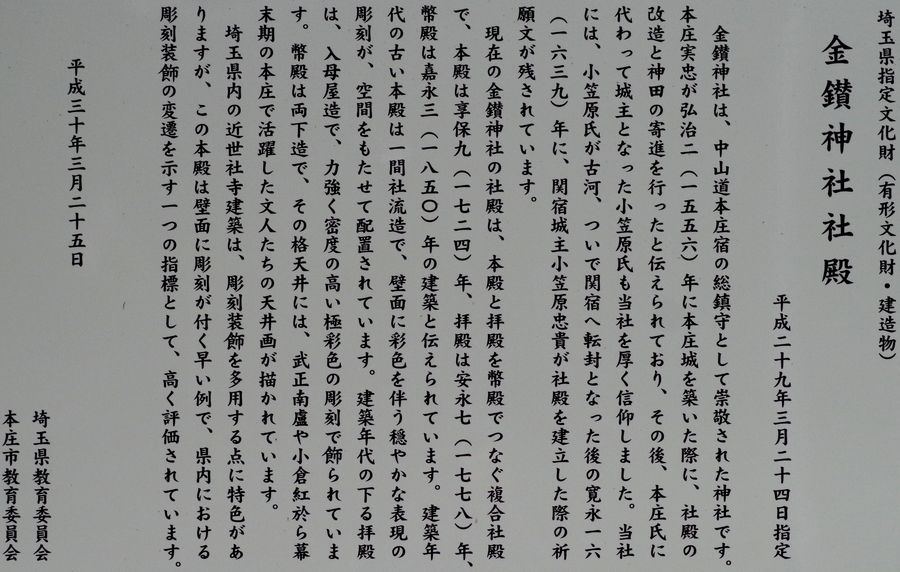 埼玉県指定文化財（有形文化財・建造物）
金鑚神社社殿
平成二十九年三月二十四日指定
金鑚神社は、中山道本庄宿の総鎮守として崇敬された神社です。
本庄実忠が弘治二（一五五六）年に本庄城を築いた際に、社殿の
改造と神田の寄進を行ったと伝えられており、その後、本庄氏に
代わって城主となった小笠原氏も当社を厚く信仰しました。当社
には、小笠原氏が古河、ついで関宿へ転封となった後の寛永一六
（一六三九）年に、関宿城主小笠原忠貴が社殿を建立した際の祈
願文が残されています。
現在の金鑚神社の社殿は、本殿と拝殿を幣殿でつなぐ複合社殿
で、本殿は享保九（一七二四）年、拝殿は安永七（一七七八）年、
幣殿は嘉永三（一八五〇）年の建築と伝えられています。建築年
代の古い本殿は一間社流造で、壁面に彩色を伴う穏やかな表現の
彫刻が、空間をもたせて配置されています。建築年代の下る拝殿
は、入母屋造で、力強く密度の高い極彩色の彫刻で飾られていま
す。幣殿は両下造で、その格天井には、武正南盧や小倉紅於ら幕
末期の本庄で活躍した文人たちの天井画が描かれています。
埼玉県内の近世社寺建築は、彫刻装飾を多用する点に特色があ
りますが、この本殿は壁面に彫刻が付く早い例で、県内における
彫刻装飾の変遷を示す一つの指標として、高く評価されています。
平成三十年三月二十五日
埼玉県教育委員会
本庄市教育委員会